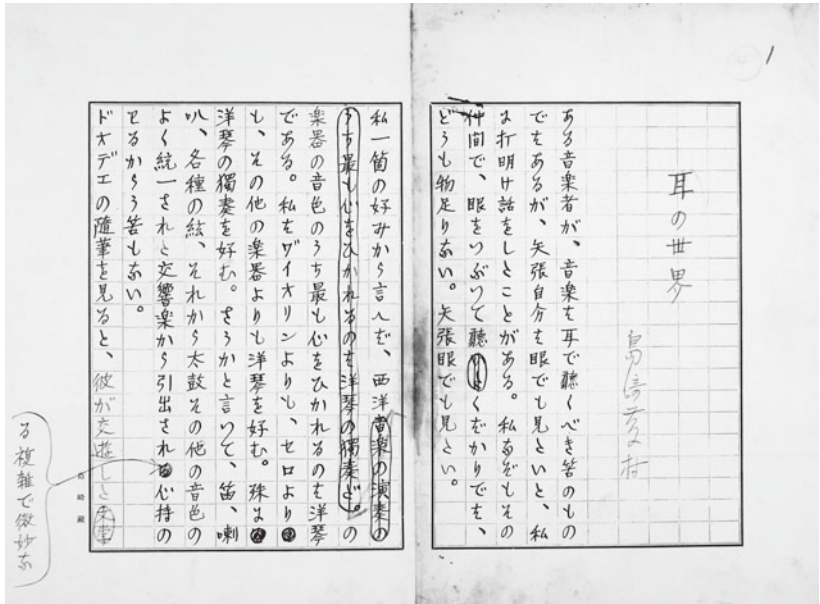 1
耳の世界
島崎藤村
ある音楽者が、音楽は耳で聽くべき筈のもの
ではあるが、矢張自分は眼でも見たいと、私
に打明け話をしたことがある。私なぞもその
仲間で、眼をつぶつて聽くばかりでは、
どうも物足りない。矢張眼でも見たい。
私一箇の好みから言へば、西洋音楽の演奏の
うち最も心をひかれるのは洋琴の獨奏だ。の
楽器の音色のうち最も心をひかれるのは洋琴
である。私はヴイオリンよりも、セロより
も、その他の楽器よりも洋琴を好む。殊に
洋琴の獨奏を好む。さうかと言つて、笛、喇
叭、各種の絃、それから太鼓その他の音色の
よく統一された交響楽から引出される心持の
わるからう筈もない。
ドオデエの隨筆を見ると、彼が交遊した文学
る複雑で微妙な